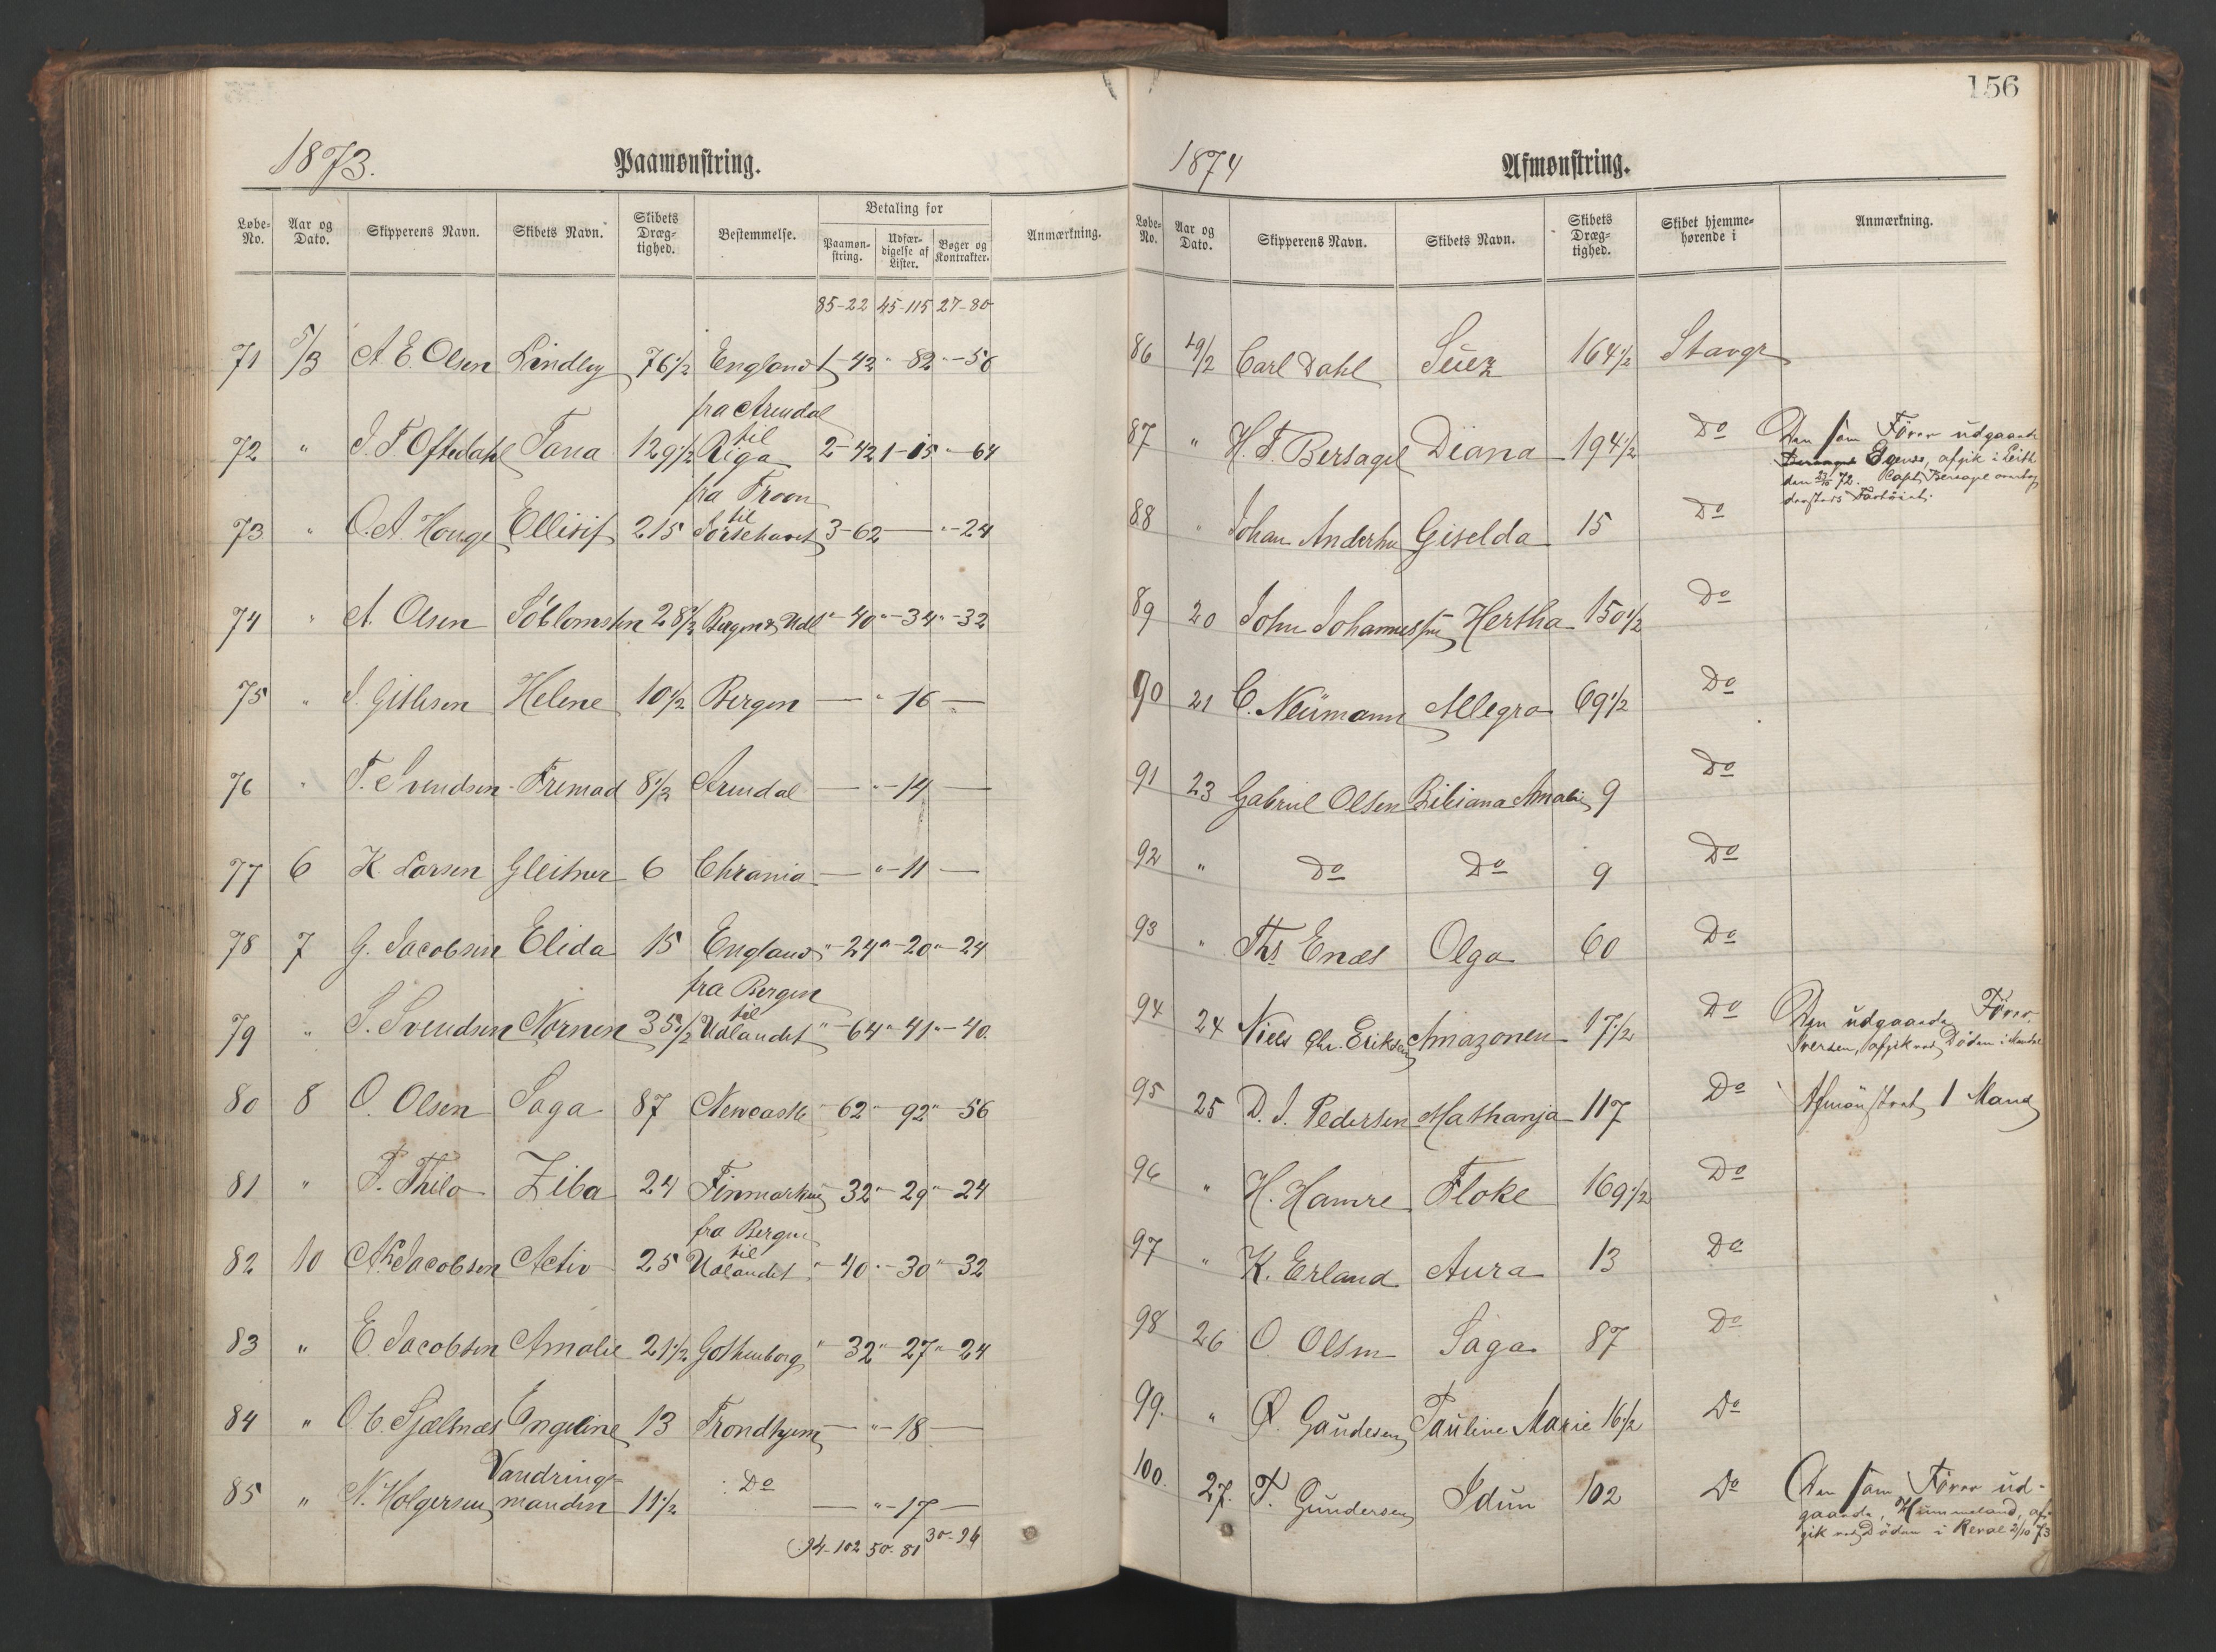 156
1873. Paamønstring.
Løbe-No. Aar og Dato. Skipperens Navn. Skibets Navn. Skibets Dræg-tighed. Bestemmelse. Betaling for Paamøn-string. Udfær-digelse af Lister. Bøger og Kontrakter. Anmærkning.
85-22 45-115 27-80
71 5/3 A. E. Olsen Lindley 76 1/2 England 1-42 " -82 " -56
fra Arendal
72 " J. T. Oftedahl Tana 129 1/2 til Riga 2-42 1-15 " -64
fra Troon
73 " O. A. Houge Ellisif 215 til 3-62 — " -24
74 " A. Olsen Söblomsten 28 1/2 Bergen & Udl " -40 " -34 " -32
75 " J. Gitlesen Helene 10 1/2 Bergen — " 16 —
76 " T. Svendsen Fremad 8 1/2 Arendal — " -14 —
77 6 K. Larsen Gleitner 6 Chrania — " -11 —
78 7 G. Jacobsen Elida 15 England " -24 " -20 " -24
fra Bergen
79 " S. Svendsen Nornen 35 1/2 til Udlandet " -64 " -41 " -40
80 8 O. Olsen Saga 87 Newcastle " -62 " -92 " -56
81 " T. Thilo Ziba 24 Finmarken " -32 " -29 " -24
fra Bergen
82 10 Jacobsen Activ 25 til Udlandet " -40 " -30 " -32
83 " E. Jacobsen Amalie 21 1/2 Gothenborg " -32 " -27 " -24
84 " O. C. Sjælnæs Engeline 13 Trondhjem — " -18 —
85 " N. Holgersen Vandrings=manden 11 1/2 Do — " -17 —
94-102 50-81 30-96
1874 Afmønstring.
Løbe-No. Aar og Dato. Skipperens Navn. Skibets Navn. Skibets Dræg-tighed. Skibet hjemme-hørende i Anmærkning.
86 19/2 Carl Dahl Suez 164 1/2 Stavgr
87 " H. T. Bersagel Diana 194 1/2 Do Den som Förer udgaaede
afgik i Leith
den 72. Capt Bersagel overtog
Fartöiet
88 " Johan Andersen Giselda 15 Do
89 20 John Johannessen Hertha 150 1/2 Do
90 21 C. Neumann Allegro 69 1/2 Do
91 23 Gabriel Olsen Bibiana Amalie 9 Do
92 " Do Do 9 Do
93 " Ths Enæs Olga 60 Do
94 24 Niels Chr. Eriksen Amazonen 17 1/2 Do Den udgaaede Förer
Iversen, afgik ved Döden i Mandal
95 25 D. J. Pedersen Mathanja 117 Do Afmönstret 1 Mand
96 " H. Hamre Floke 169 1/2 Do
97 " K. Erland Aura 13 Do
98 26 O Olsen Saga 87 Do
99. " Ø. Gaudesen Pauline Marie 16 1/2 Do
100. 27. T. Gundersen Idun 102 Do Den som Förer ud-
gaaede, Hummeland, af-
gik ved Döden i Reval 2/10 73